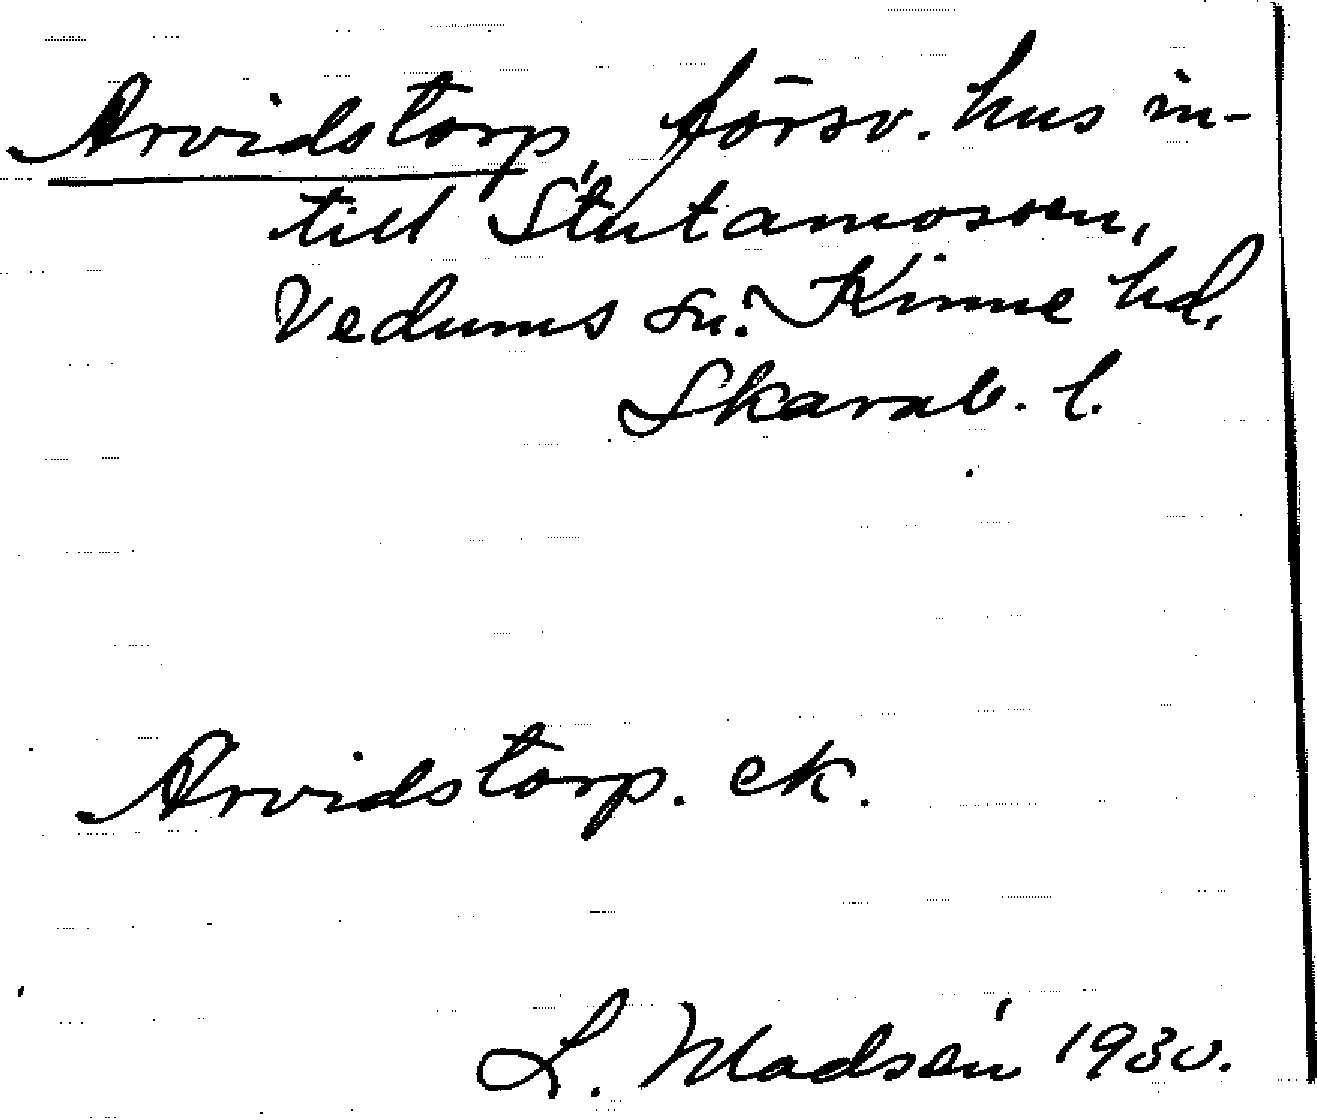 Arvidstorp, försv. hus in-
till Stutamossen,
Vedums sn. Kinne hd,
Skarab. l.
Arvidstorp. ek.
L. Madsén 1930.